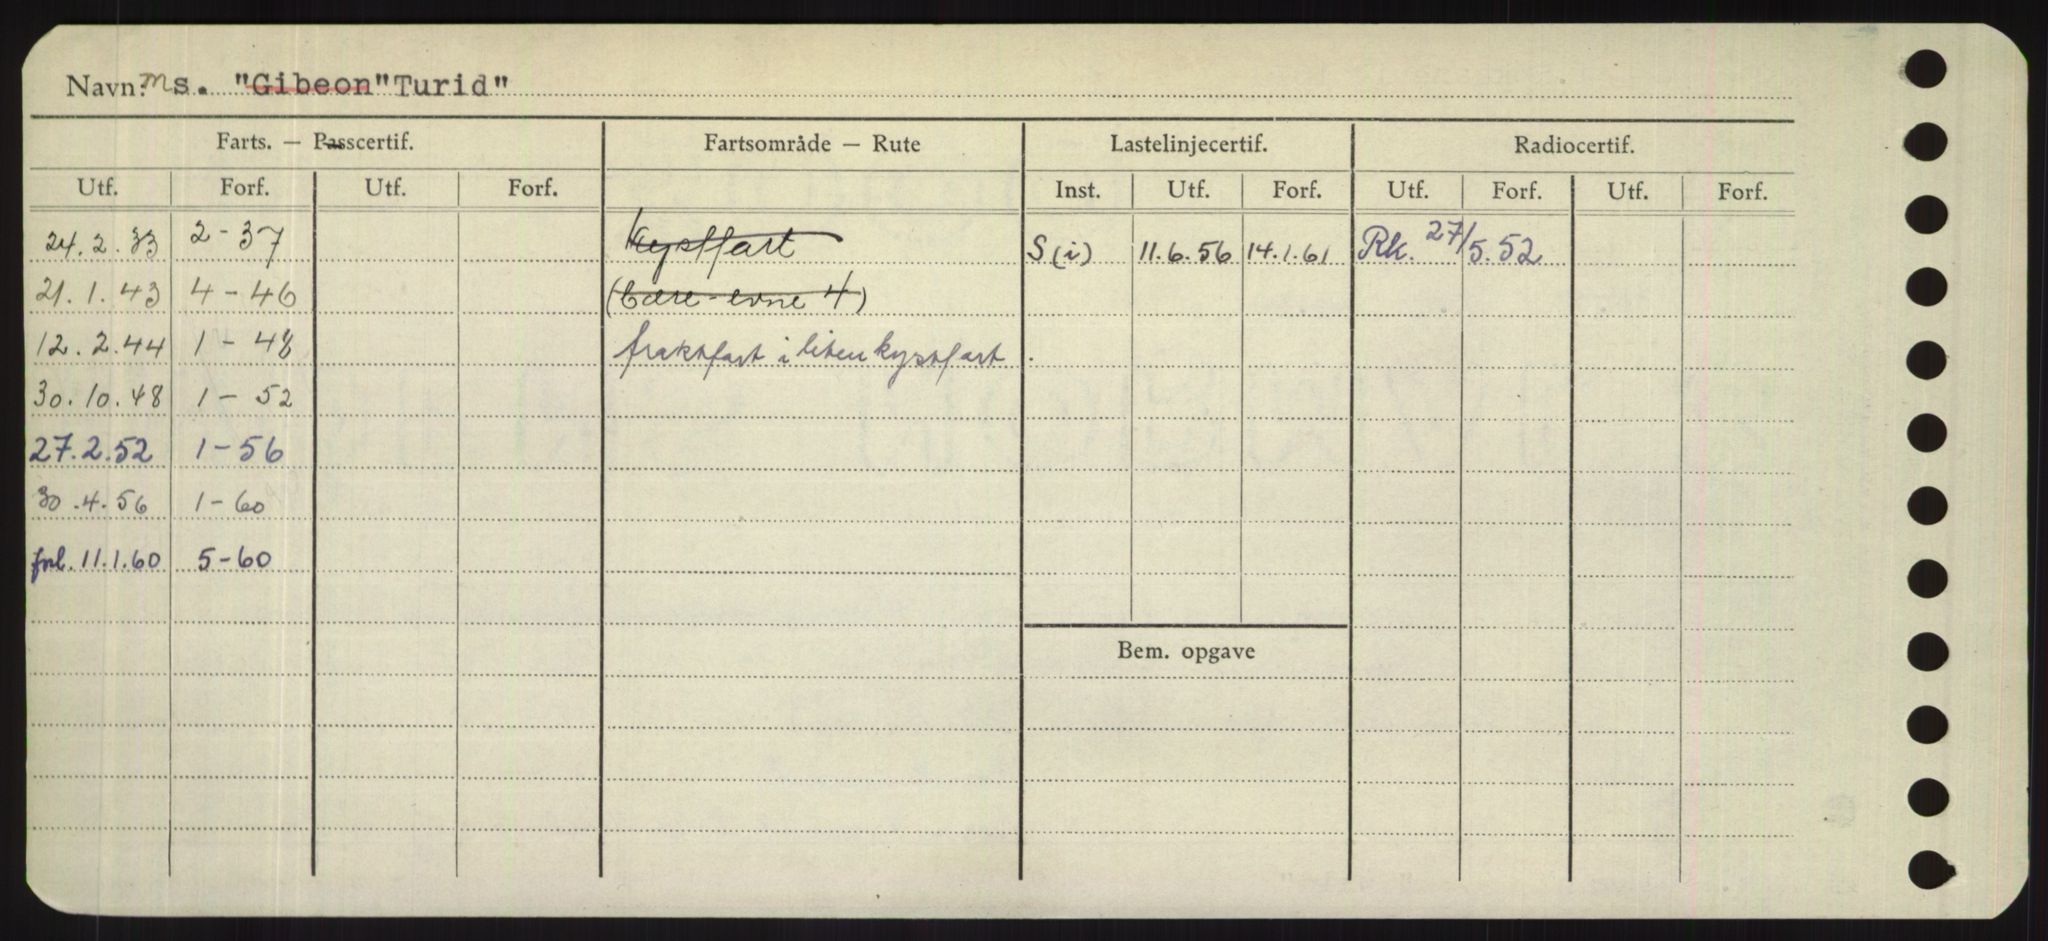 Navn: Ms. "Gibeon" Turid"
Farts. — Passcertif. Fartsområde — Rute Lastelinjecertif. Radiocertif.
Utf. Forf. Utf. Forf. Inst. Utf. Forf. Utf. Forf. Utf. Forf.
24.2.33 2-37 Kystfart S(i) 11.6.56 14.1.61 Rk. 27/5.52
21.1.43 4-46 (bære-evne 4)
12.2.44 1-48 fraktfart i liten kystfart.
30.10.48 1-52
27.2.52 1-56
30.4.56 1-60
forl. 11.1.60 5-60
Bem. opgave